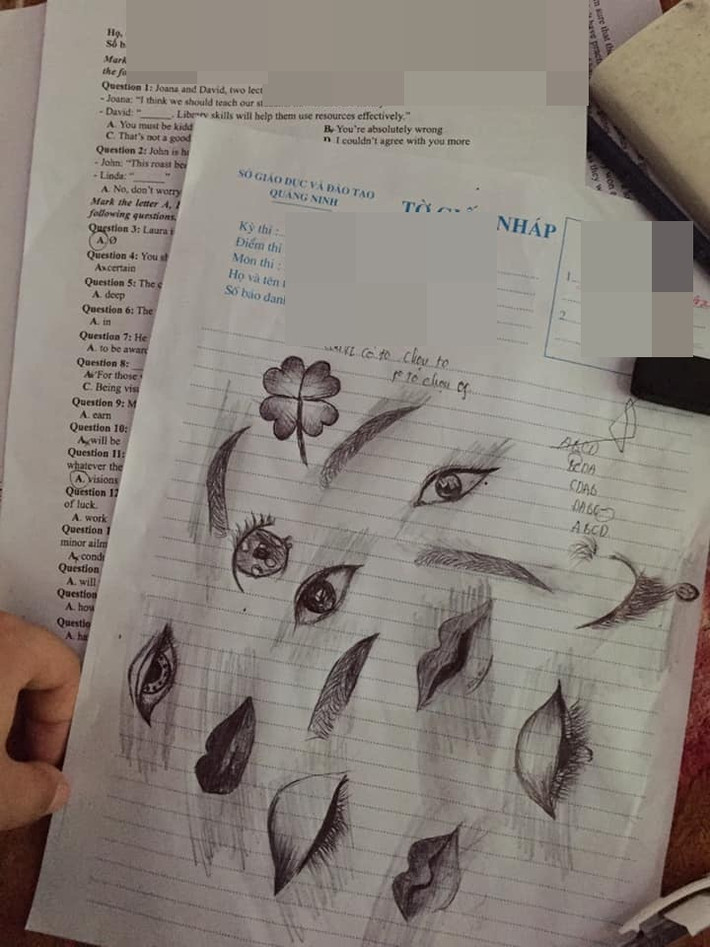 Họ,
Số b
Mark
the fo
Question 1: Joana and David, two lect
- Joana: "I think we should teach our st
- David: "______. Liberty skills will help them use resources effectively."
A. You must be kidd B. You're absolutely wrong
C. That's not a good D. I couldn't agree with you more
Question 2: John is h
- John: "This roast bee
- Linda: "______"
A. No, don't worry
Mark the letter A,
following questions.
Question 3: Laura i
A. Ø
Question 4: You sh
A. certain
Question 5: The c
A. deep
Question 6: The
A. in
Question 7: He
A. to be aware
Question 8: __
A. For those
C. Being visi
Question 9: M
A. earn
Question 10:
A. will be
Question 11:
whatever the
A. visions
Question 12
of luck.
A. work
Question 1
minor ailm
A. condi
Question
A. will
Question
A. how
Questio
A. ha
SỞ GIÁO DỤC VÀ ĐÀO TẠO
QUẢNG NINH
TỜ GIẤY NHÁP
Kỳ thi :
Điểm thi
Môn thi :
Họ và tên t
Số báo dan
1.
2
có tô chọn to
ABCD
BCDA
CDAB
DABC
ABCD